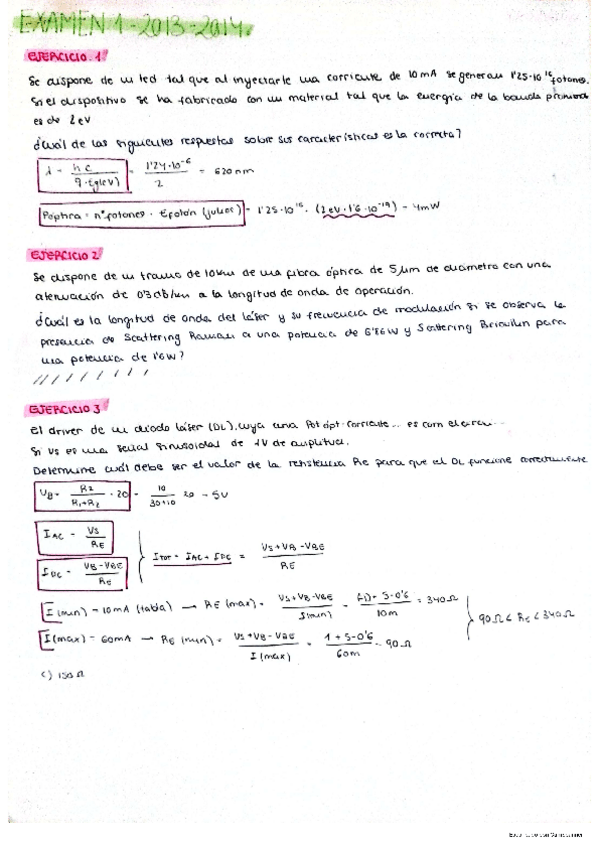 EXAMEN 1 - 2013 - 2014.
EJERCICIO 1
Se dispone de un led tal que al inyectarle una corriente de 10mA se generan 1'25·10^16 fotones.
Si el dispositivo se ha fabricado con un material tal que la energía de la banda prohibida
es de 2eV
¿Cuál de las siguientes respuestas sobre sus características es la correcta?
λ = hc / q·Eg(eV) = 1'24·10^-6 / 2 = 620nm
Póptica = nºfotones · Efotón (julios) = 1'25·10^16 · (2eV·1'6·10^-19) = 4mW
EJERCICIO 2
Se dispone de un tramo de 10km de una fibra óptica de 5μm de diámetro con una
atenuación de 0'3 db/km a la longitud de onda de operación.
¿Cuál es la longitud de onda del láser y su frecuencia de modulación si se observa la
presencia de Scattering Raman a una potencia de 6'86W y Scattering Brioullin para
una potencia de 1'6W?
/ / / / / / / / /
EJERCICIO 3
El driver de un diodo láser (DL), cuya curva Pot ópt-Corriente... es com el
Si Vs es una señal sinusoidal de 1V de amplitud.
Determine cuál debe ser el valor de la resistencia RE para que el DL funcione correctamente
VB = R2 / R1+R2 · 20 = 10 / 30+10 20 = 5V
IAC = VS / RE
IDC = VB-VBE / RE
ITOT = IAC + IDC = VS+VB-VBE / RE
I(min) = 10mA (tabla) → RE(max) = VS+VB-VBE / I(min) = (-1)+5-0'6 / 10m = 340Ω
I(max) = 60mA → RE(min) = VS+VB-VBE / I(max) = 1+5-0'6 / 60m = 90Ω
90Ω < RE < 340Ω
c) 150Ω